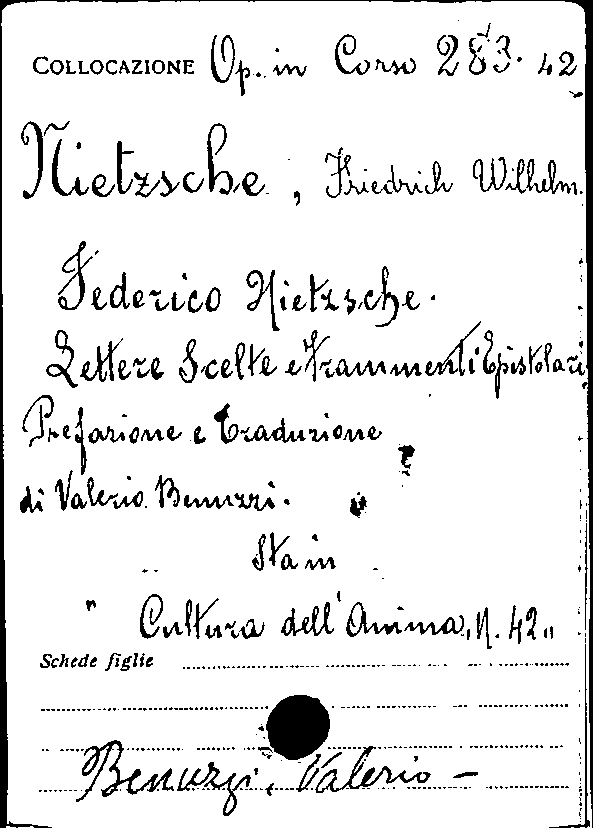 COLLOCAZIONE Op. in Corso 283. 42
Nietzsche, Friedrich Wilhelm.
Federico Nietzsche.
Lettere Scelte e Frammenti Epistolari
Prefazione e Traduzione
di Valerio Benuzzi.
Sta in
" Cultura dell'Anima, N. 42"
Schede figlie
Benuzzi, Valerio -